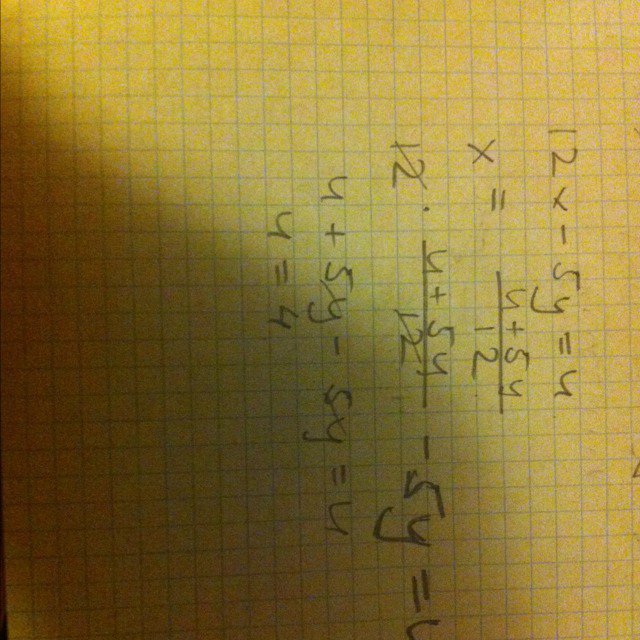 12x - 5y = 4
x = (4 + 5y)/12
12 · (4 + 5y)/12 - 5y = 4
4 + 5y - 5y = 4
4 = 4